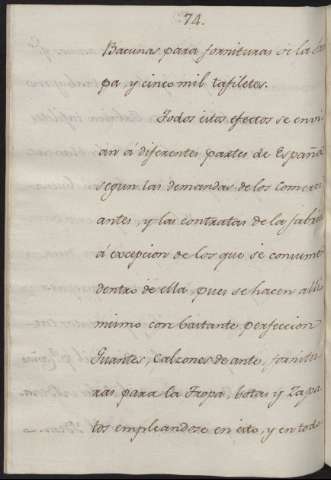 74.
Bacunas para fornituras de la tro
pa, y cinco mil tafiletes.
Todos estos efectos se envi
an á diferentes partes de España
segun las demandas de los comerci
antes, y las contratas de la fabrica
á excepcion de los que se consumen
dentro de ella, pues se hacen alli
mismo con bastante perfeccion
Guantes, calzones de ante, fornitu
ras para la Tropa, botas y Zapa
tos empleandose en esto, y en todo